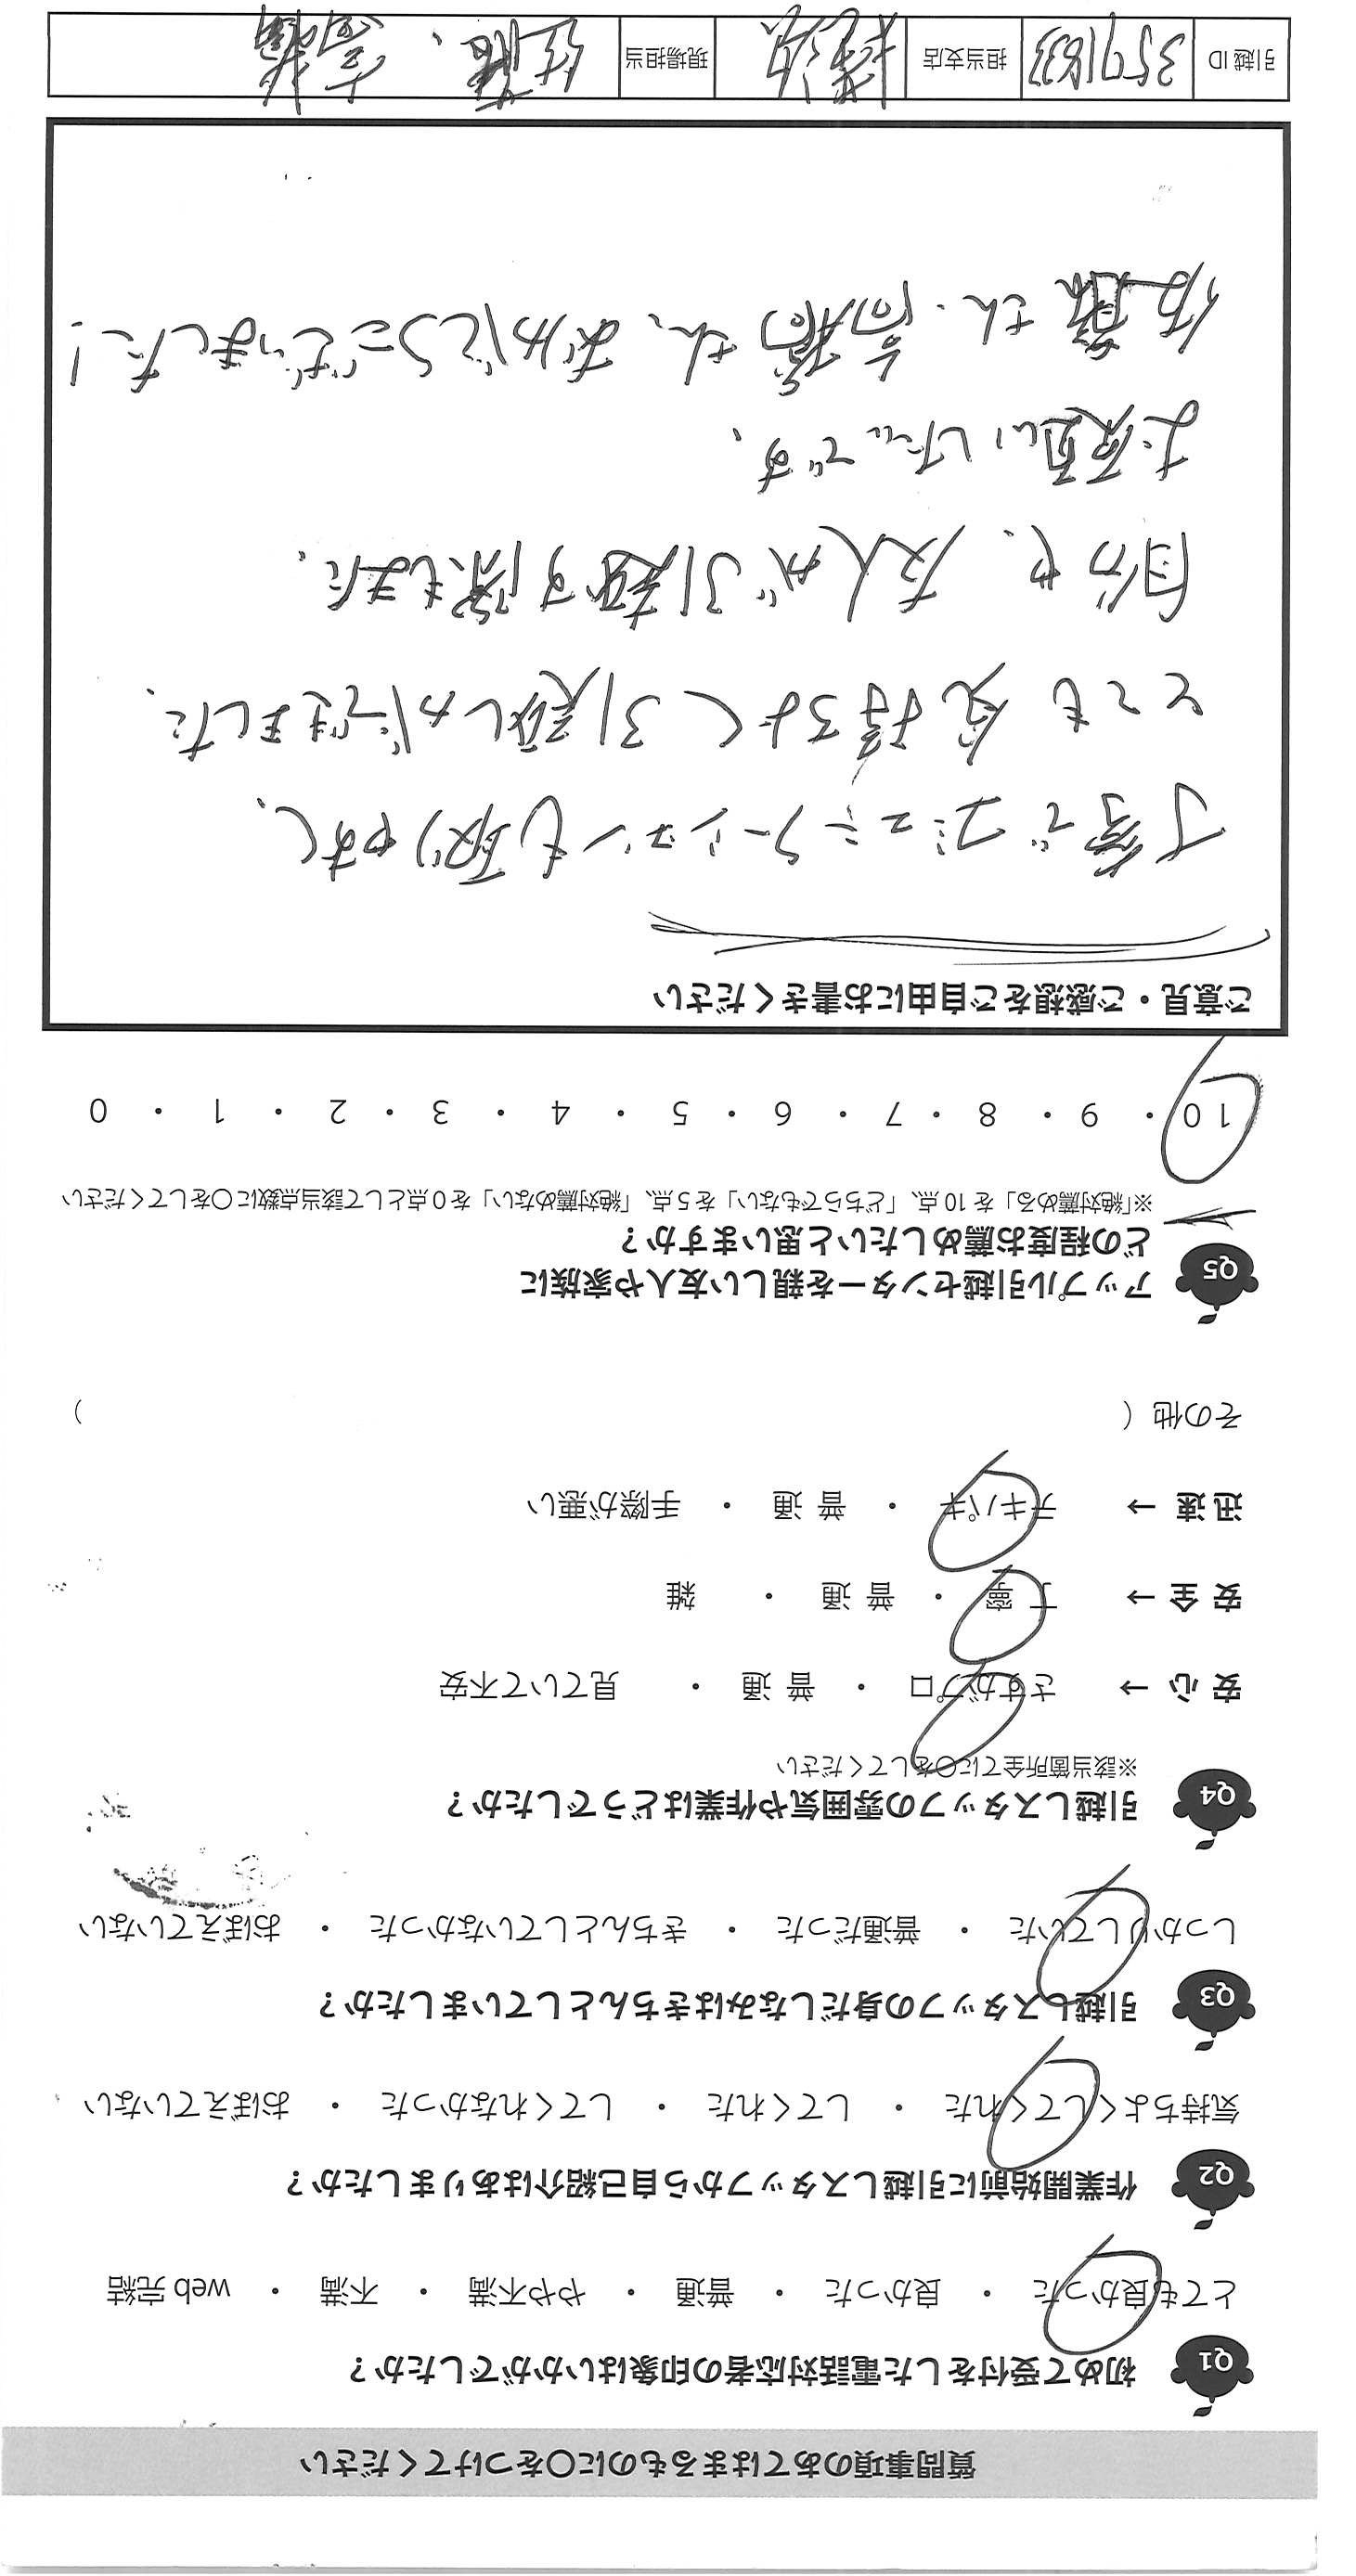 質問事項のあてはまるものに○をつけてください
Q1 初めて受付をした電話対応者の印象はいかがでしたか？
とても良かった ・ 良かった ・ 普通 ・ やや不満 ・ 不満 ・ web 完結
Q2 作業開始前に引越しスタッフから自己紹介はありましたか？
気持ちよくしてくれた ・ してくれた ・ してくれなかった ・ おぼえていない
Q3 引越しスタッフの身だしなみはきちんとしていましたか？
しっかりしていた ・ 普通だった ・ きちんとしていなかった ・ おぼえていない
Q4 引越しスタッフの雰囲気や作業はどうでしたか？
※該当箇所全てに○をしてください
安心 → さすがプロ ・ 普通 ・ 見ていて不安
安全 → 丁寧 ・ 普通 ・ 雑
迅速 → テキパキ ・ 普通 ・ 手際が悪い
その他（ ）
Q5 アップル引越センターを親しい友人や家族に
どの程度お薦めしたいと思いますか？
※「絶対薦める」を 10 点、「どちらでもない」を 5 点、「絶対薦めない」を 0 点として該当点数に○をしてください
10 ・ 9 ・ 8 ・ 7 ・ 6 ・ 5 ・ 4 ・ 3 ・ 2 ・ 1 ・ 0
ご意見・ご感想をご自由にお書きください
丁寧でコミュニケーションも取りやすく、
とても気持ちよく引越しができました、
自分や、友人が引越す際もまた、
お願いしたいです、
佐藤さん・高橋さん、ありがとうございました！
引越 ID 担当支店 横浜 現場担当 佐藤、高橋